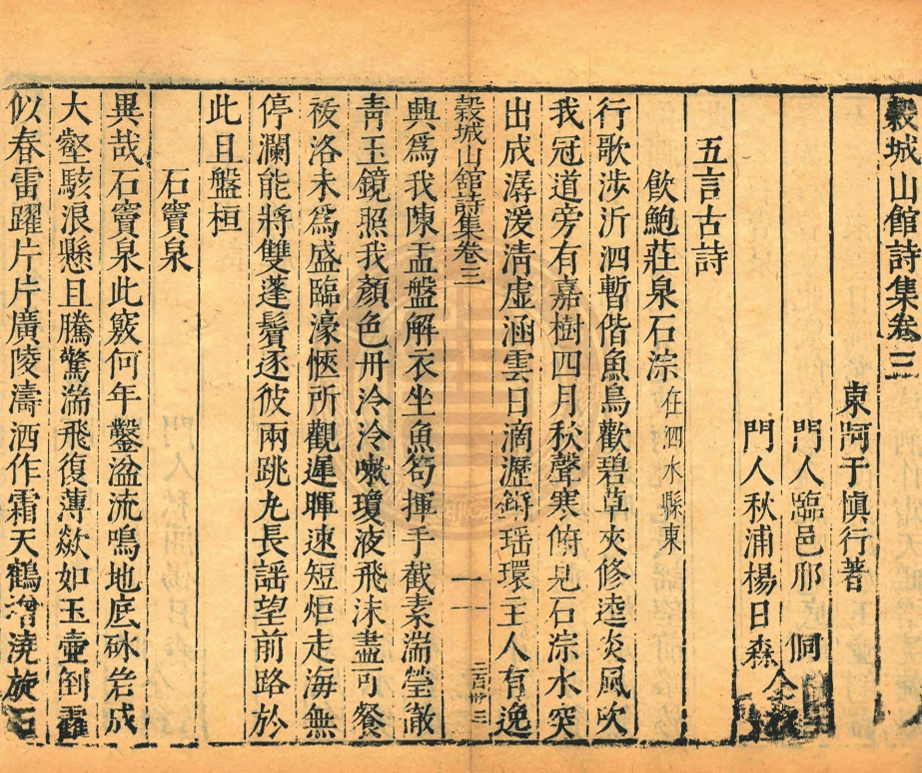 穀城山館詩集卷三
東阿于慎行著
門人臨邑邢侗
門人秋浦楊日森仝
五言古詩
飲鮑莊泉石淙在泗水縣東
行歌涉沂泗暫偕魚鳥歡碧草夾修逵炎風吹
我冠道旁有嘉樹四月秋聲寒俯見石淙水突
出成潺湲淸虛涵雲日滴瀝鏘瑶環主人有逸
穀城山館詩集卷三
一
興爲我陳盂盤解衣坐魚笱揮手截素湍瑩澈
靑玉鏡照我顏色丹泠泠嗽瓊液飛沫盡可餐
祓洛未爲盛臨濠愜所觀遲暉速短炬走海無
停瀾能將雙蓬鬢逐彼兩跳九長謡望前路於
此且盤桓
石竇泉
異哉石竇泉此竅何年鑿湓流鳴地底砯岩成
大壑駭浪懸且騰驚湍飛復薄歘如玉壷倒
似春雷躍片片廣陵濤洒作霜天鶴增澆旋石